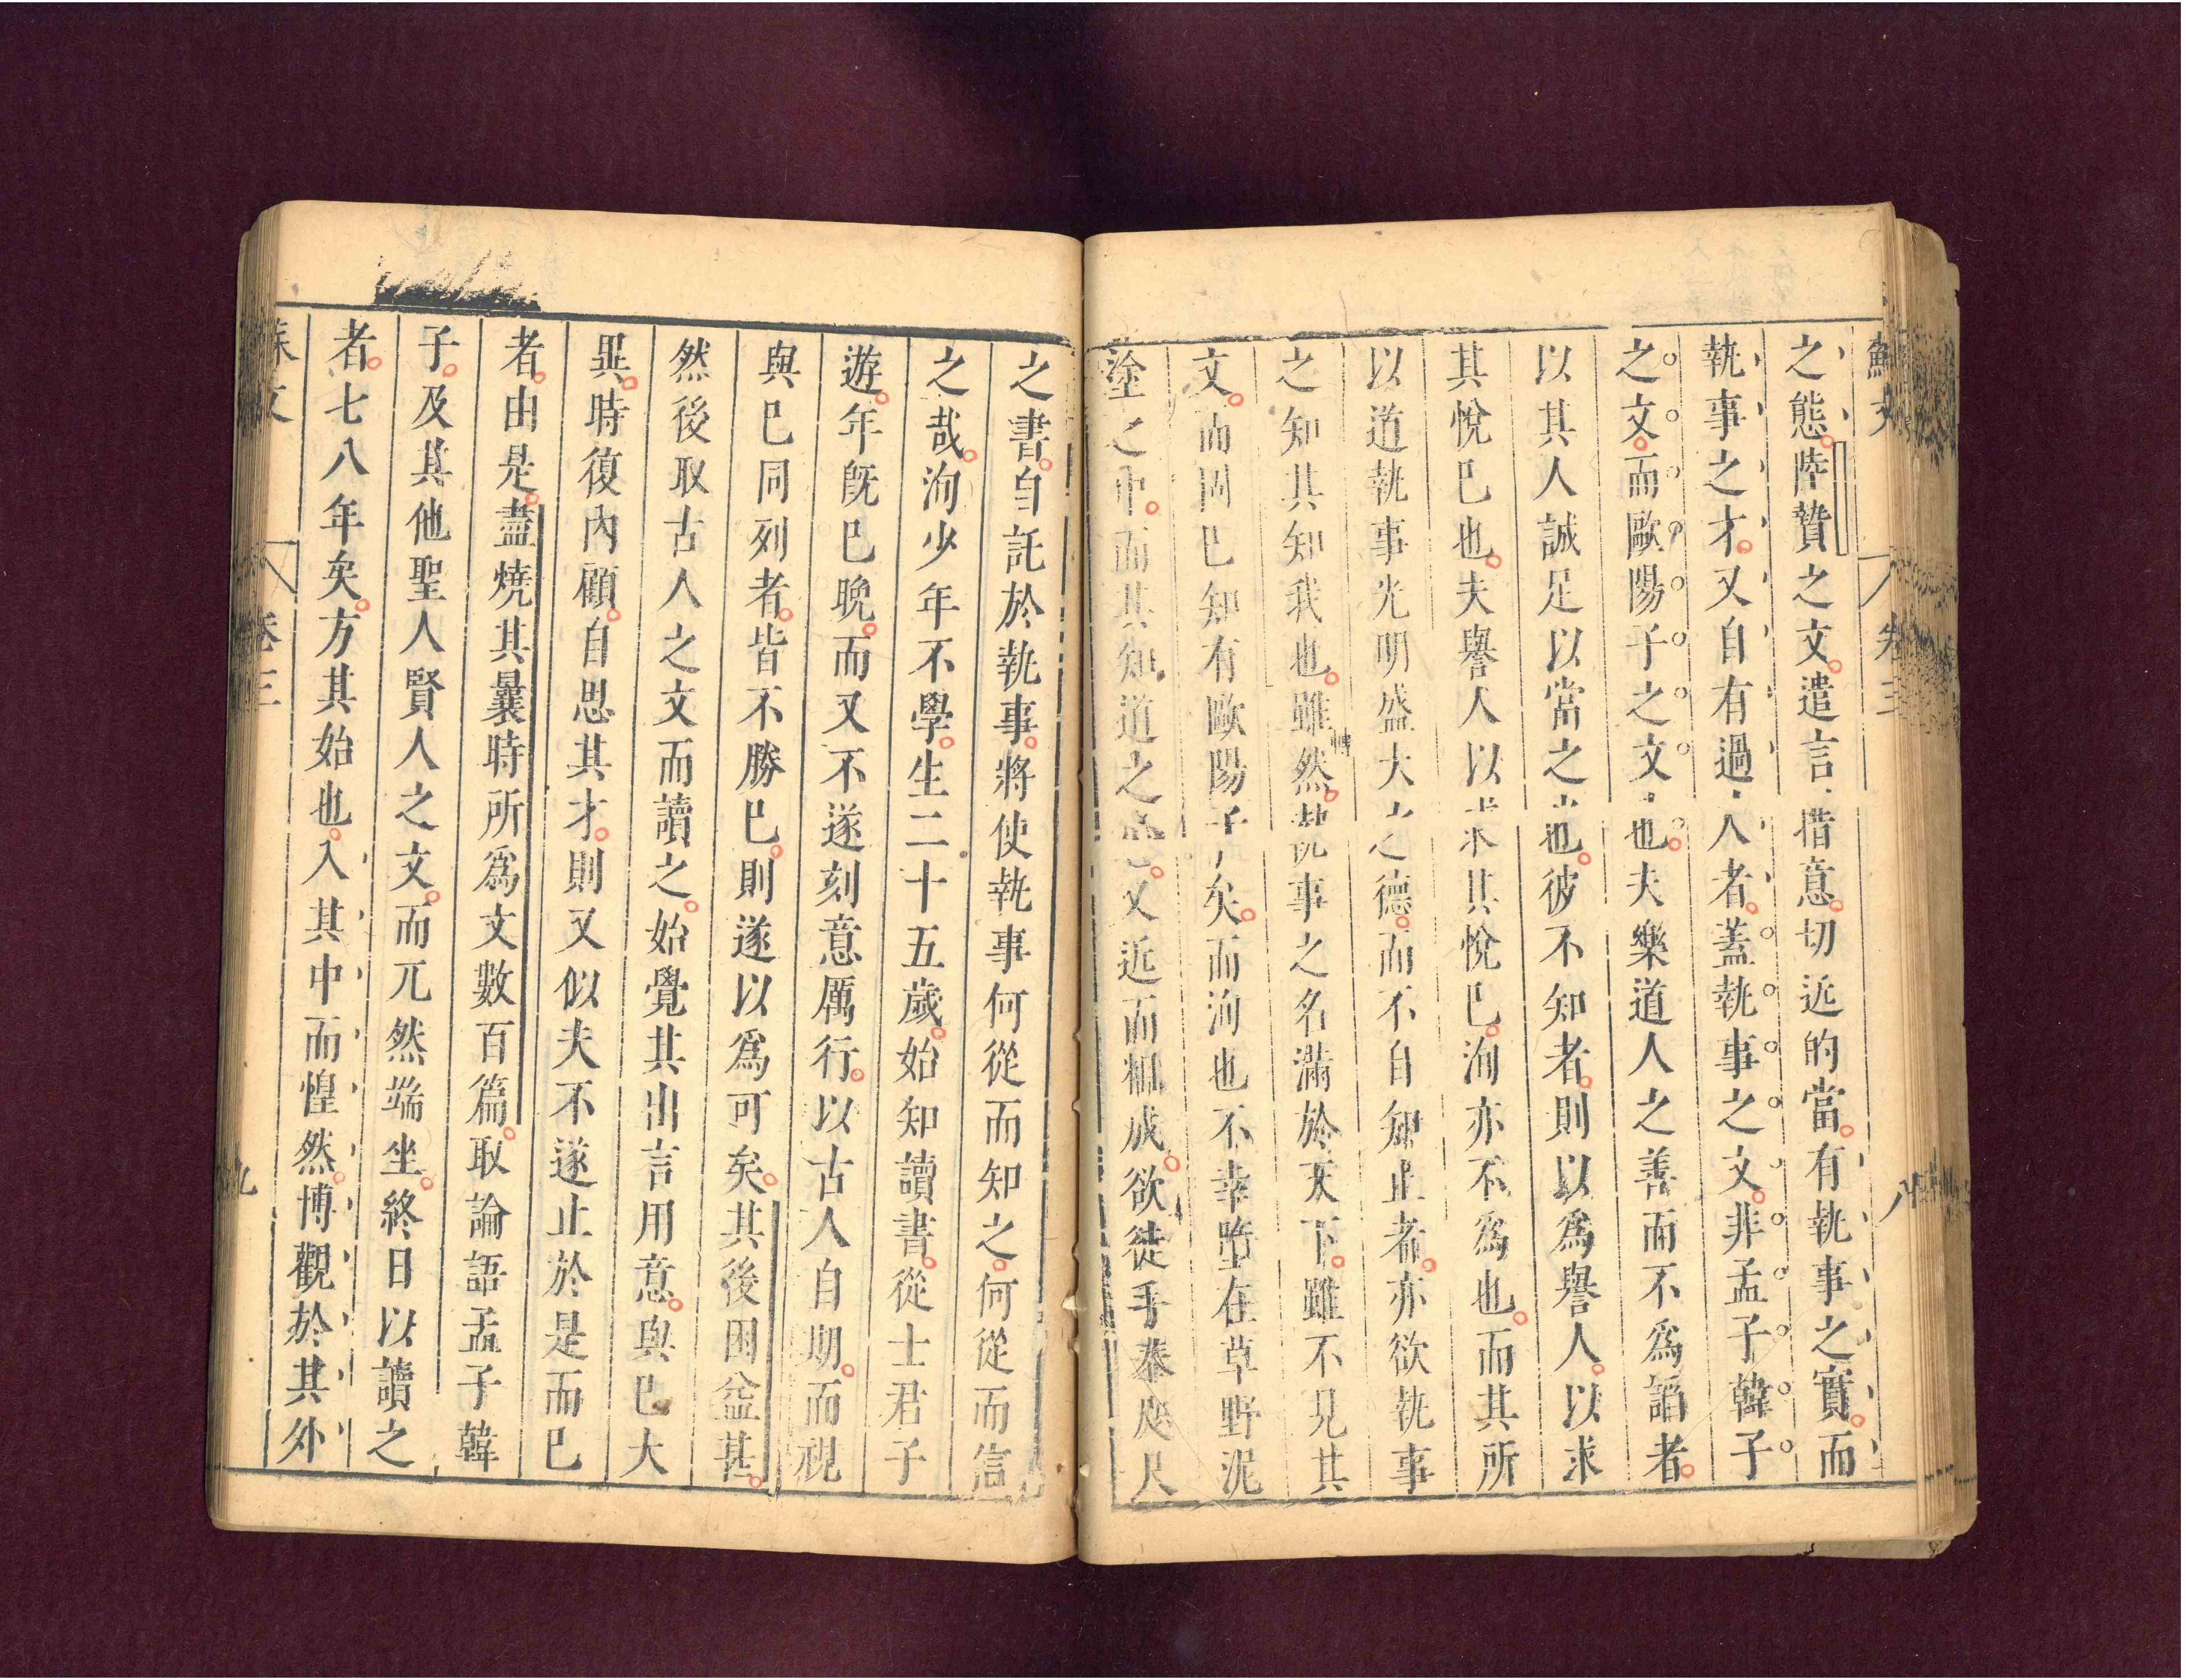 蘇文 卷三 八
之態陸贄之文遣言措意切近的當有執事之實而
執事之才又自有過人者蓋執事之文非孟子韓子
之文而歐陽子之文也夫樂道人之善而不為諂者
以其人誠足以當之也彼不知者則以為譽人以求
其悅已也夫譽人以求其悅已洵亦不為也而其所
以道執事光明盛大之德而不自知止者亦欲執事
之知其知我也雖然執事之名滿於天下雖不見其
文而固已知有歐陽子矣而洵也不幸墮在草野泥
塗之中而其知道之心又近而粗成欲徒手奉咫尺
之書自託於執事將使執事何從而知之何從而信
之哉洵少年不學生二十五歲始知讀書從士君子
遊年既已晚而又不遂刻意厲行以古人自期而視
與已同列者皆不勝已則遂以為可矣其後困益甚
然後取古人之文而讀之始覺其出言用意與已大
異時復內顧自思其才則又似夫不遂止於是而已
者由是盡燒其曩時所為文數百篇取論語孟子韓
子及其他聖人賢人之文而兀然端坐終日以讀之
者七八年矣方其始也入其中而惶然博觀於其外
蘇文 卷三 九